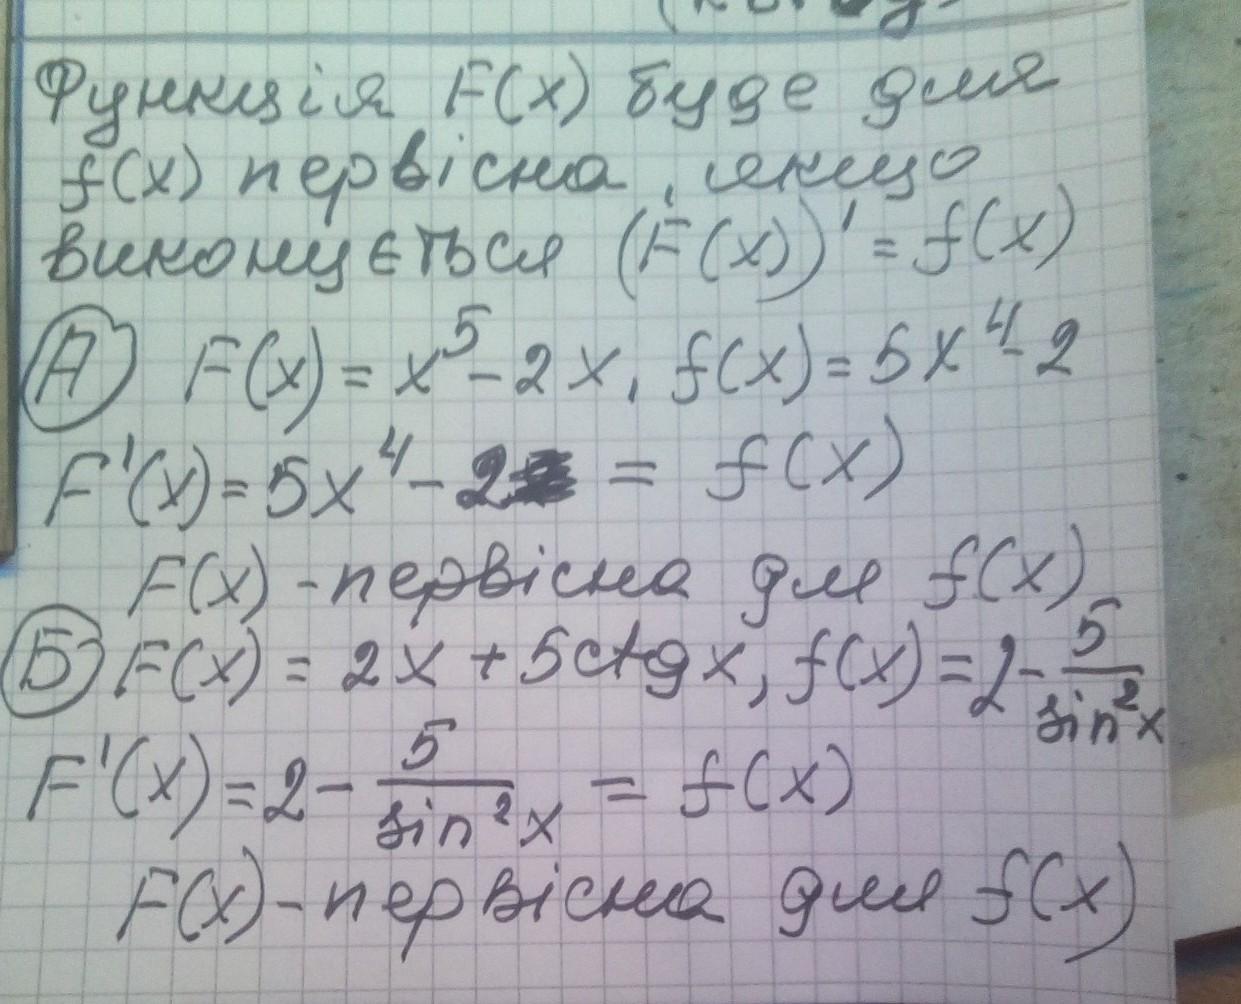 Функція F(x) буде для
f(x) первісна, якщо
виконується (F(x))' = f(x)
А F(x) = x⁵ - 2x, f(x) = 5x⁴ - 2
F'(x) = 5x⁴ - 2 = f(x)
F(x) - первісна для f(x)
Б F(x) = 2x + 5ctgx, f(x) = 2 - 5/sin²x
F'(x) = 2 - 5/sin²x = f(x)
F(x) - первісна для f(x)